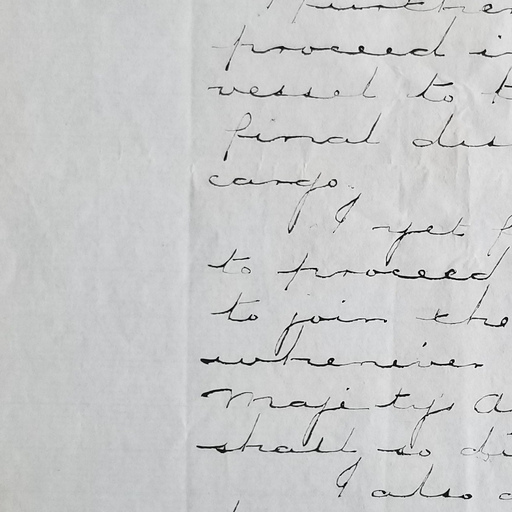 I further
proceed i
vessel to t
final dis
cargo,
I yet f
to proceed
to join the
whenever
Majesty's A
shall so di
I also a